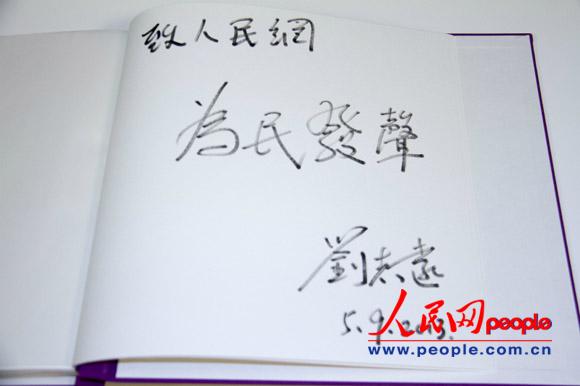 致人民網
為民發聲
劉志遠
5.9.2013.
人民网people
www.people.com.cn